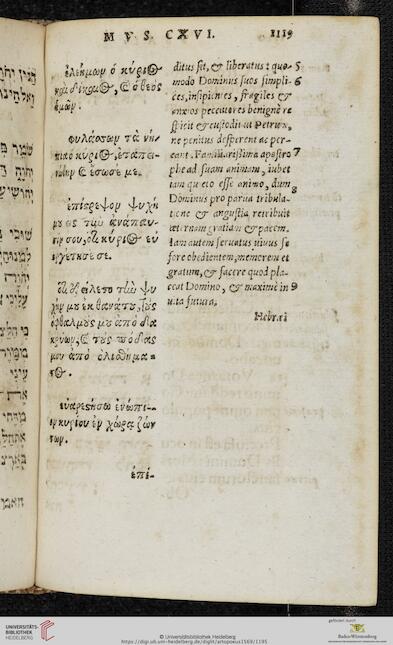 MVS CXVI. 1119
ἐλεήμων ὁ κύριος
καὶ δίκαιος, καὶ ὁ θεὸς
ἡμῶν.
φυλάσσων τὰ νή-
πια ὁ κύριος, ἐταπει-
νώθην καὶ ἔσωσέ με.
ἐπίστρεψον ψυχή
μου εἰς τὴν ἀνάπαυ-
σίν σου, ὅτι κύριος εὐ
ηργέτησέ σε.
ὅτι ἐξείλετο τὴν ψυ
χήν μου ἐκ θανάτου, τοὺς
ὀφθαλμούς μου ἀπὸ δα
κρύων, καὶ τοὺς πόδας
μου ἀπὸ ὀλισθήμα-
τος.
εὐαρεστήσω ἐνώπι-
ον κυρίου ἐν χώρᾳ ζών
των.
ἐπί-
ditus sit, & liberatus: quo- 5
modo Dominus suos simpli- 6
ces, insipientes, fragiles &
anxios peccatores benignè re
spicit & custodit ut Petrum,
ne penitus desperent ac per-
eant. Familiarissima apostro 7
phe ad suam animam, iubet
tam quieto esse animo, dum 8
Dominus pro parua tribula-
tione & angustia retribuit
æternam gratiam & pacem.
Iam autem seruatus uiuus se
fore obedientem, memorem et
gratum, & facere quod pla-
ceat Domino, & maximè in 9
uita futura.
Hebræi
UNIVERSITÄTS-
BIBLIOTHEK
HEIDELBERG
© Universitätsbibliothek Heidelberg
https://digi.ub.uni-heidelberg.de/diglit/artopoeus1569/1195
gefördert durch
Baden-Württemberg